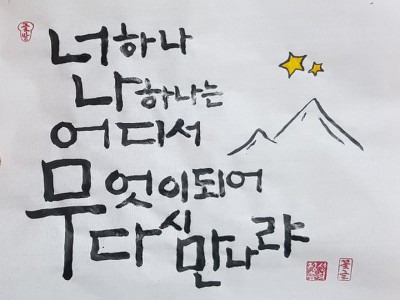 너하나
나하나는
어디서
무엇이되어
다시만나랴